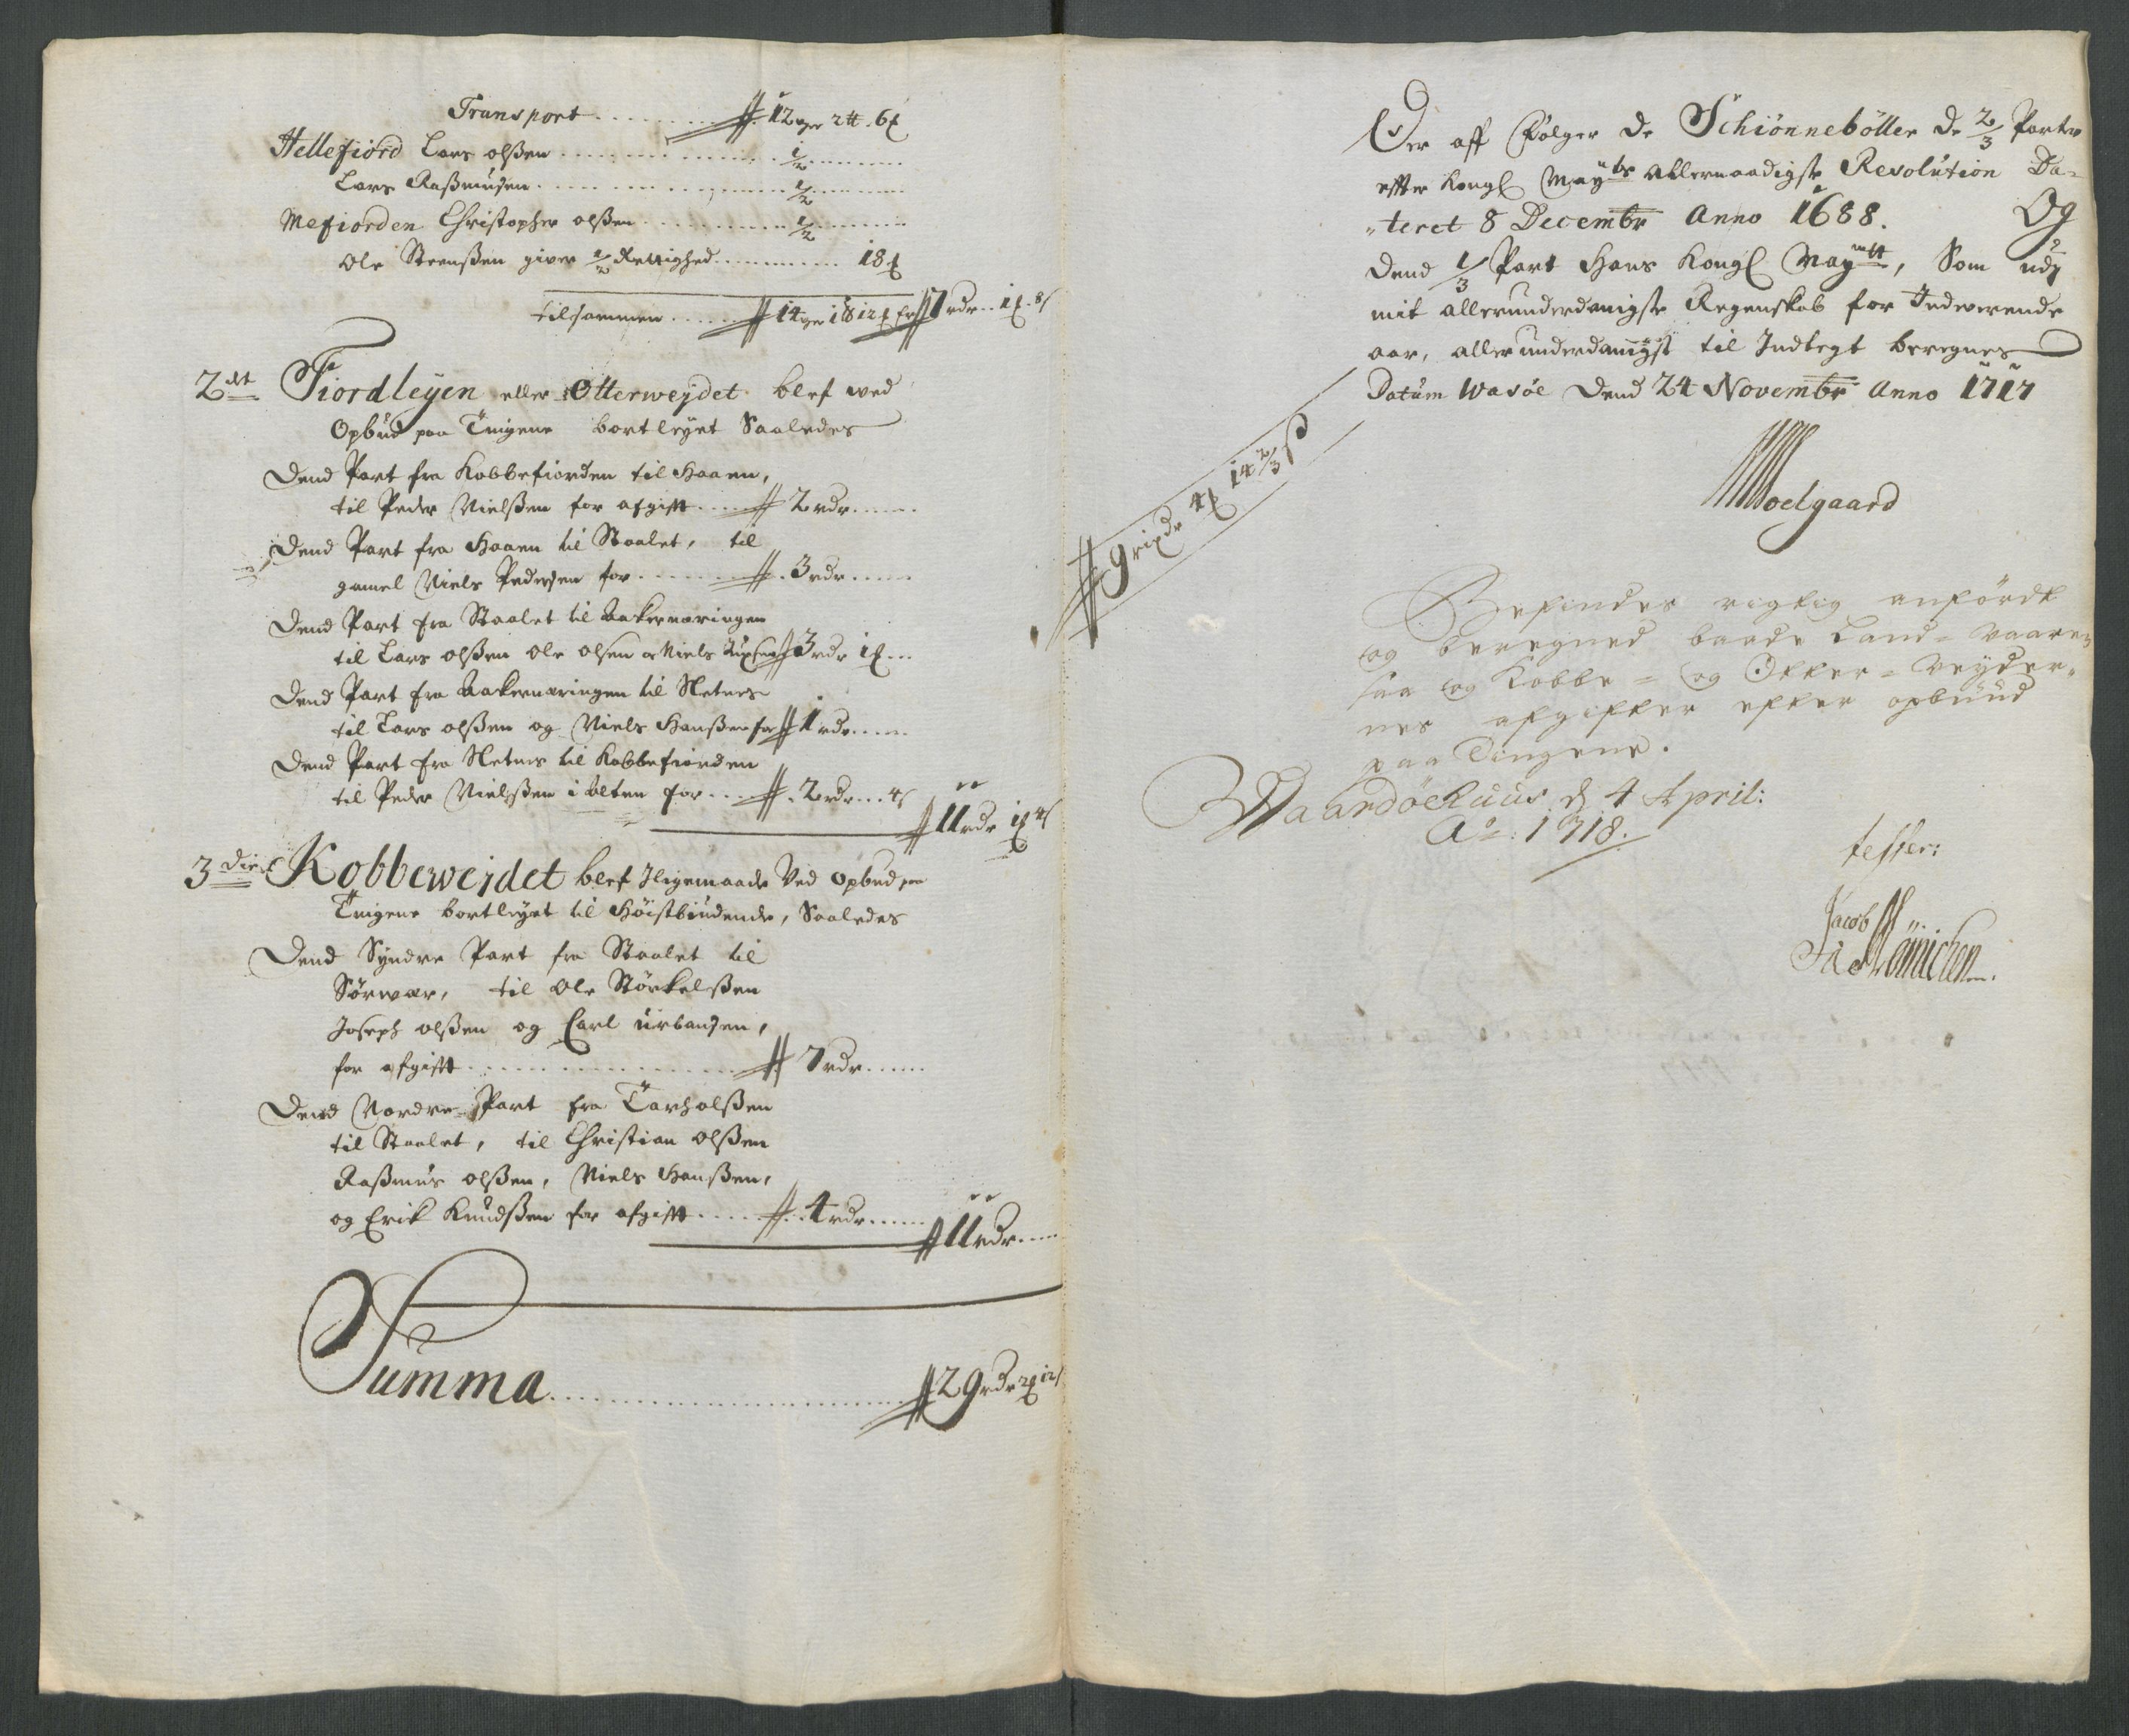 Transport ........ # 12 wger 2 tt 6
Hellefiord Lars olßen ........ 1/2 ........
Lars Raßmusen ........ 1/2 ........
Mefiorden Christopher olßen ........ 1/2 ........
Ole Steenßen giver 1/2 Rettighed ........ 18
tilsammen ........ # 14 wger 1 # 7 rdr .. 1 . 8 s
2det Fiordleyen eller Otterwejdet blef wed
Opbud paa Tingene bortleyet Saaledes
Dend Part fra Kobbefiorden til Haaen,
til Peder Nielßen for afgift ........ # 2 rdr ........
Dend Part fra Haaen til Staalet, til
gamel Niels Pedersen for ........ # 3 rdr ........
Dend Part fra Staalet til Aakernæringen
til Lars olßen Ole olsen Niels # 3 rdr 1 ...
Dend Part fra Aakernæringen til Netnes
til Lars olßen og Niels Hanßen for # 1 rdr ........
Dend Part fra Netnes til Kobbefiorden
til Peder Nielßen i Alten for ........ # 2 rdr ... 4 s
# 11 rdr 1 4 s
3die Kobbewejdet blef Ligemaade Ved Opbud paa
Tingene bortleyet til Höistbiudende, Saaledes
Dend Syndre Part fra Staalet til
Sörwær, til Ole Störkelßen
Joseph olßen og Carl urbansen,
for afgift ........ # 7 rdr ........
Dend Nordre Part fra Tarhalßen
til Staalet, til Christian Olßen
Raßmus olßen, Niels Hanßen,
og Erik Knudßen for afgift ........ # 4 rdr ........
# 11 rdr ........
Summa ........ # 29 rdr 2 12 s
Der aff Fölger de Schiönneböller de 2/3 Parter
effter Kongl Mayts Allernaadigste Resolution Da=
"teret 8 Decembr Anno 1688. Og
Dend 1/3 Part Hans Kongl Maytt, Som udj
mit allerunderdanigste Regenskab for Indeverende
aar, allerunderdanigst til Indtegt beregnes
Datum Wasöe Dend 24 Novembr Anno 1717
Woelgaard
# 9 rixdr 4 14 2/3 s
Befindes rigtig anfördt
og beregned baade Land= Vaaren
saa og Kobbe= og Otter= Veyder=
nes afgifter efter opbuud
paa Tingene.
Waardöehuus d 4 April:
Ao: 1718.
tester:
Jacob
Mönichen.